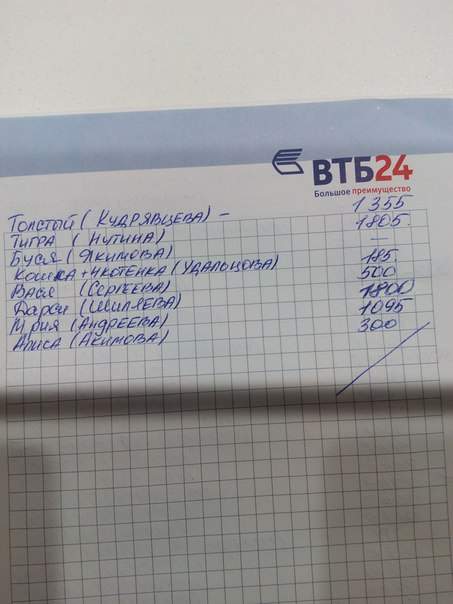 ВТБ24
Большое преимущество
Толстый (Кудрявцева) – 1355
Тигра (Нутина) 1805.
Буся (Якимова) –
Кошка + 4 котёнка (Удальцова) 185.
Вася (Сергеева) 500
Дарси (Шиляева) 1800
Мрия (Андреева) 1095
Алиса (Акимова) 300